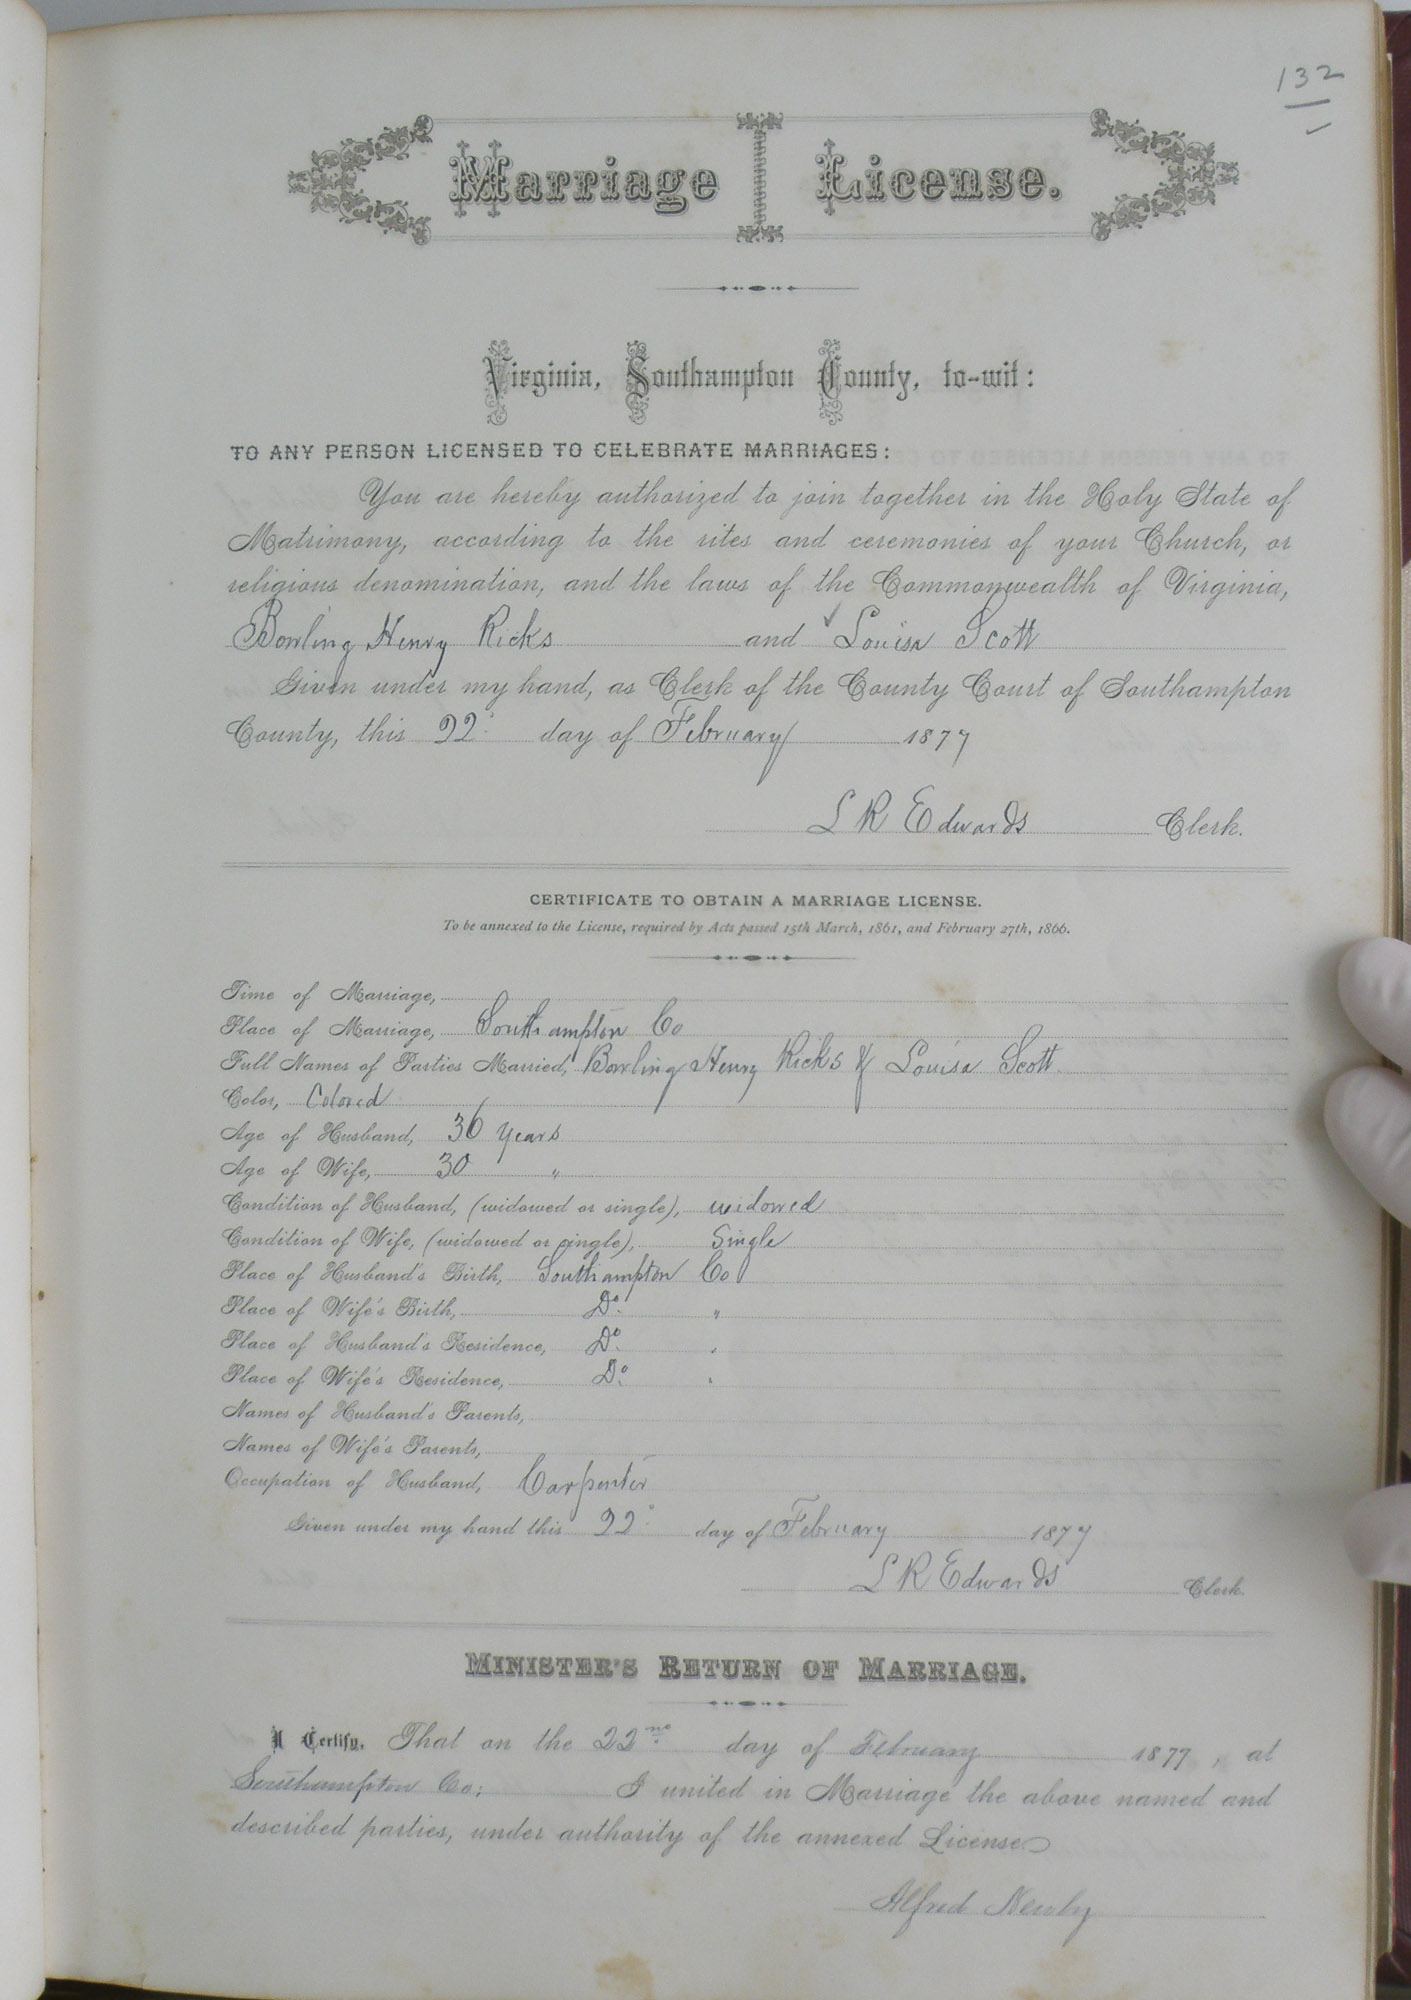 132
Marriage License.
Virginia, Southampton County, to-wit:
TO ANY PERSON LICENSED TO CELEBRATE MARRIAGES:
You are hereby authorized to join together in the Holy State of
Matrimony, according to the rites and ceremonies of your Church, or
religious denomination, and the laws of the Commonwealth of Virginia,
Bowling Henry Ricks and Louisa Scott
Given under my hand, as Clerk of the County Court of Southampton
County, this 22d day of February 1877
L R Edwards Clerk.
CERTIFICATE TO OBTAIN A MARRIAGE LICENSE.
To be annexed to the License, required by Acts passed 15th March, 1861, and February 27th, 1866.
Time of Marriage,
Place of Marriage, Southampton Co
Full Names of Parties Married, Bowling Henry Ricks & Louisa Scott
Color, Colored
Age of Husband, 36 years
Age of Wife, 30 "
Condition of Husband, (widowed or single), widowed
Condition of Wife, (widowed or single), Single
Place of Husband's Birth, Southampton Co
Place of Wife's Birth, Do "
Place of Husband's Residence, Do "
Place of Wife's Residence, Do "
Names of Husband's Parents,
Names of Wife's Parents,
Occupation of Husband, Carpenter
Given under my hand this 22d day of February 1877
L R Edwards Clerk.
MINISTER'S RETURN OF MARRIAGE.
I Certify, That on the 22nd day of February 1877, at
Southampton Co; I united in Marriage the above named and
described parties, under authority of the annexed License.
Alfred Newby